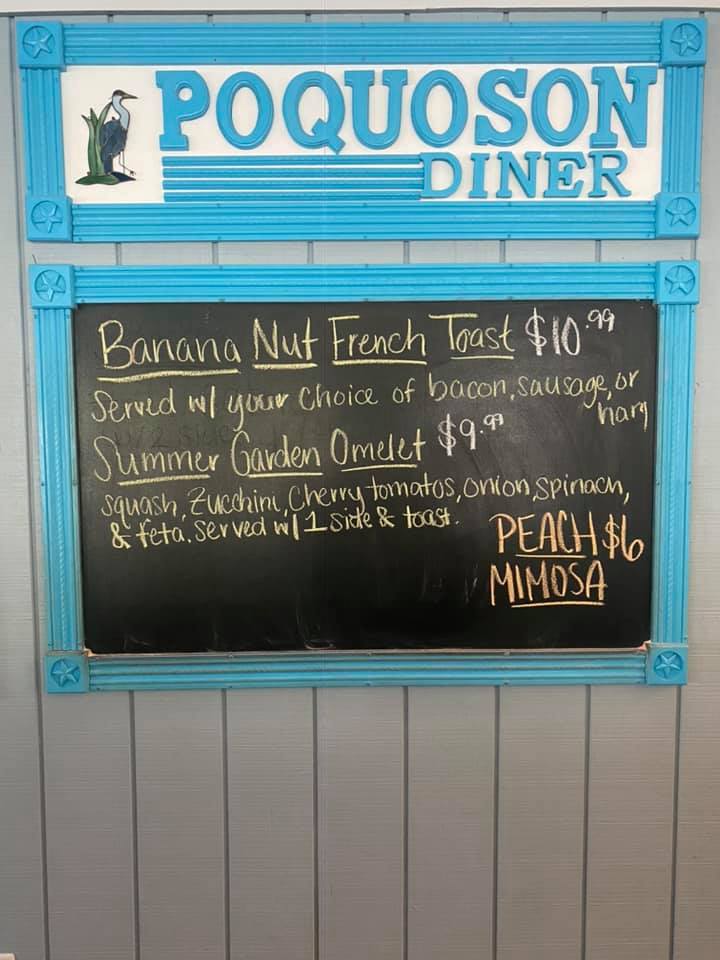 POQUOSON
DINER
Banana Nut French Toast $10.99
Served w/ your choice of bacon, sausage, or
ham
Summer Garden Omelet $9.99
squash, Zucchini, Cherry tomatos, onion, spinach,
& feta. Served w/ 1 side & toast.
PEACH $6
MIMOSA